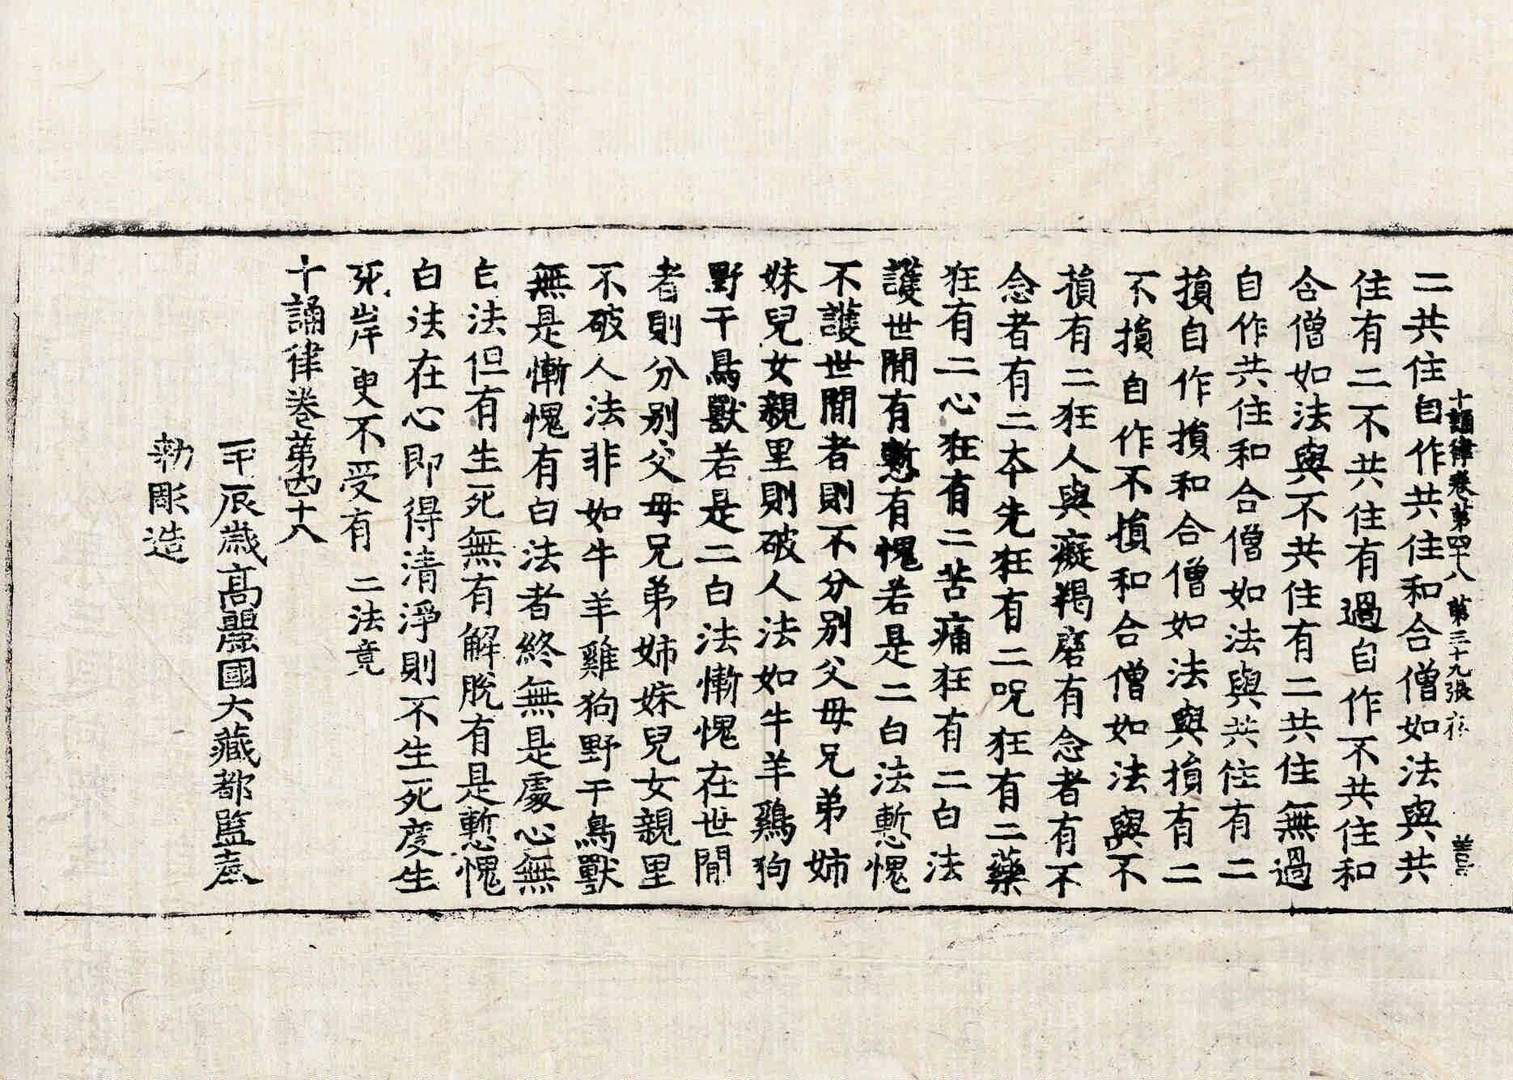 十誦律卷第四十八 第三十九張
二共住自作共住和合僧如法與共
住有二不共住有過自作不共住和
合僧如法與不共住有二共住無過
自作共住和合僧如法與共住有二
損自作損和合僧如法與損有二
不損自作不損和合僧如法與不
損有二狂人與癡羯磨有念者有不
念者有二本先狂有二呪狂有二藥
狂有二心狂有二苦痛狂有二白法
護世間有慙有愧若是二白法慙愧
不護世間者則不分別父母兄弟姉
妹兒女親里則破人法如牛羊鷄狗
野干鳥獸若是二白法慚愧在世間
者則分別父母兄弟姉妹兒女親里
不破人法非如牛羊雞狗野干鳥獸
無是慚愧有白法者終無是處心無
白法但有生死無有解脫有是慙愧
白法在心即得清淨則不生死度生
死岸更不受有 二法竟
十誦律卷第四十八
壬辰歲高麗國大藏都監奉
勅彫造